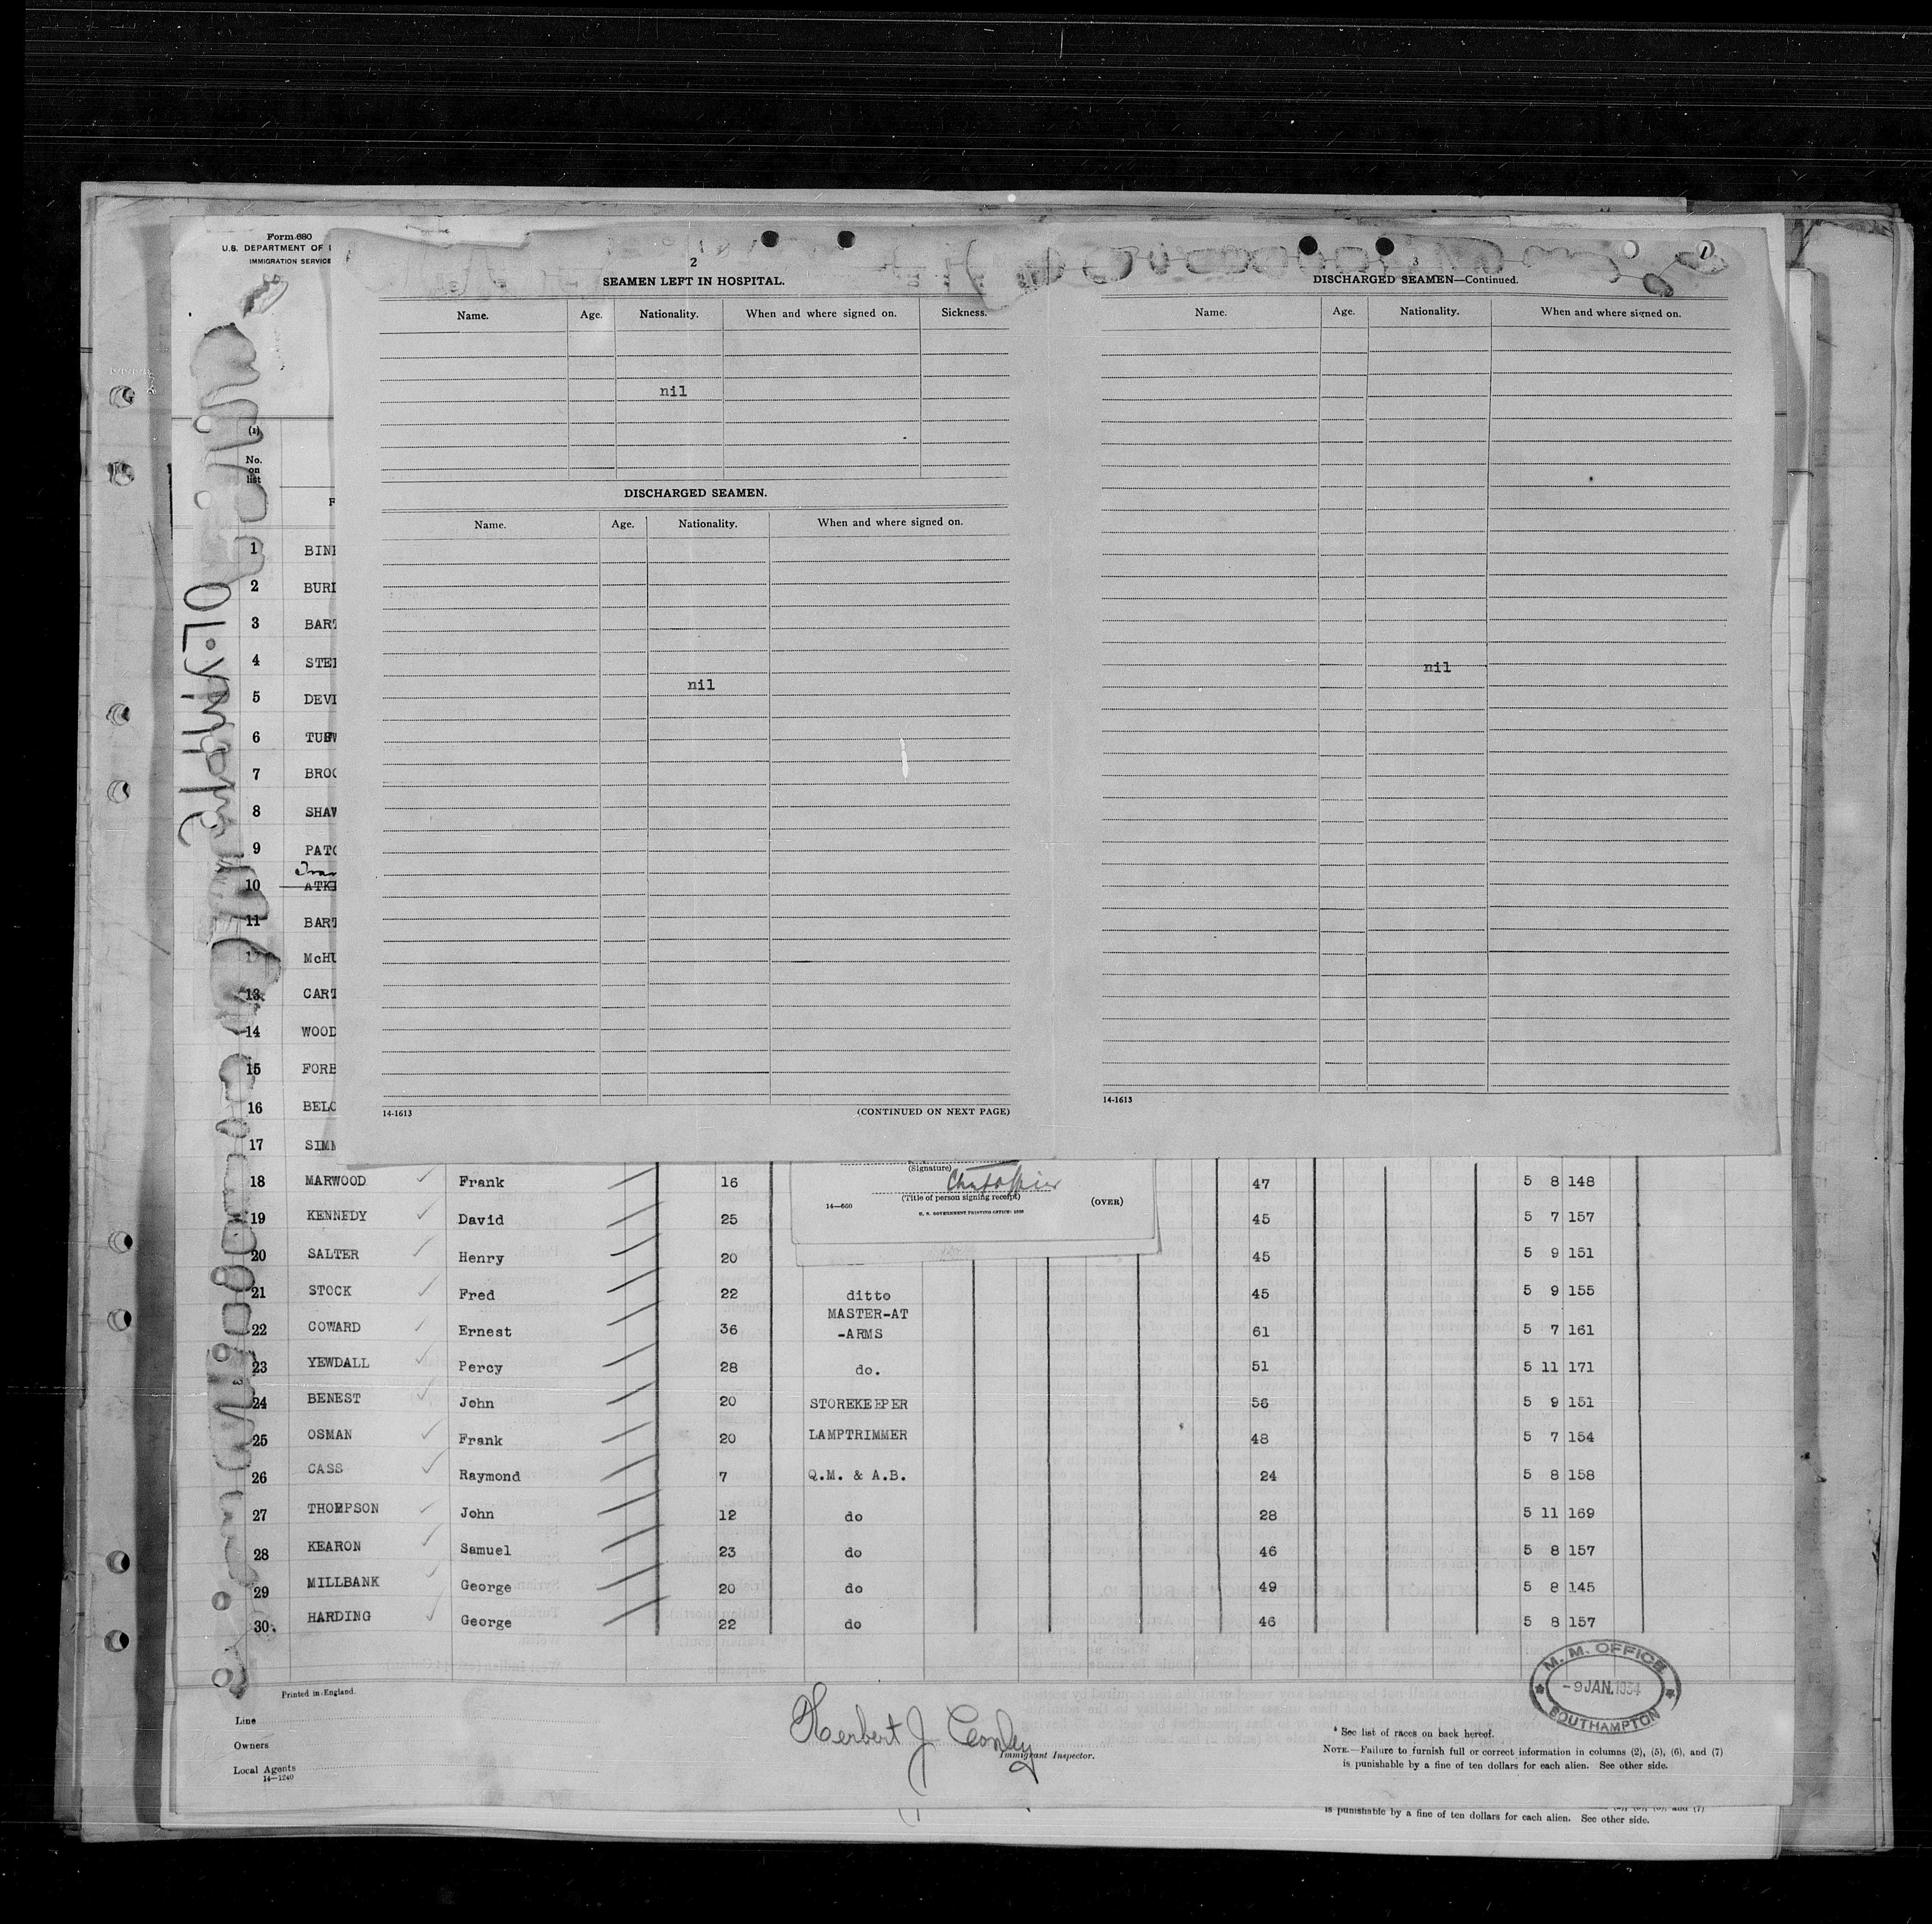 Form 680
U.S. DEPARTMENT OF
IMMIGRATION SERVICE
OLYMPIC
(1)
No. on list
2
SEAMEN LEFT IN HOSPITAL.
Name. Age. Nationality. When and where signed on. Sickness.
nil
DISCHARGED SEAMEN.
Name. Age. Nationality. When and where signed on.
nil
14-1613 (CONTINUED ON NEXT PAGE)
3
DISCHARGED SEAMEN—Continued.
Name. Age. Nationality. When and where signed on.
nil
14-1613
1 BIN
2 BUR
3 BAR
4 STE
5 DEV
6 TU
7 BRO
8 SHA
9 PAT
10 ATK
11 BAR
12 McH
13 CAR
14 WOO
15 FOR
16 BEL
17 SIM
(Signature)
(Title of person signing receipt)
14—660 U. S. GOVERNMENT PRINTING OFFICE (OVER)
18 MARWOOD Frank 16 47 5 8 148
19 KENNEDY David 25 45 5 7 157
20 SALTER Henry 20 45 5 9 151
21 STOCK Fred 22 ditto 45 5 9 155
22 COWARD Ernest 36 MASTER-AT-ARMS 61 5 7 161
23 YEWDALL Percy 28 do. 51 5 11 171
24 BENEST John 20 STOREKEEPER 56 5 9 151
25 OSMAN Frank 20 LAMPTRIMMER 48 5 7 154
26 CASS Raymond 7 Q.M. & A.B. 24 5 8 158
27 THOMPSON John 12 do 28 5 11 169
28 KEARON Samuel 23 do 46 5 8 157
29 MILLBANK George 20 do 49 5 8 145
30 HARDING George 22 do 46 5 8 157
M. M. OFFICE
-9 JAN. 1934
SOUTHAMPTON
Printed in England.
Line
Owners
Local Agents
14—1240
Herbert J Conley
Immigrant Inspector.
* See list of races on back hereof.
NOTE.—Failure to furnish full or correct information in columns (2), (5), (6), and (7)
is punishable by a fine of ten dollars for each alien. See other side.
is punishable by a fine of ten dollars for each alien. See other side.